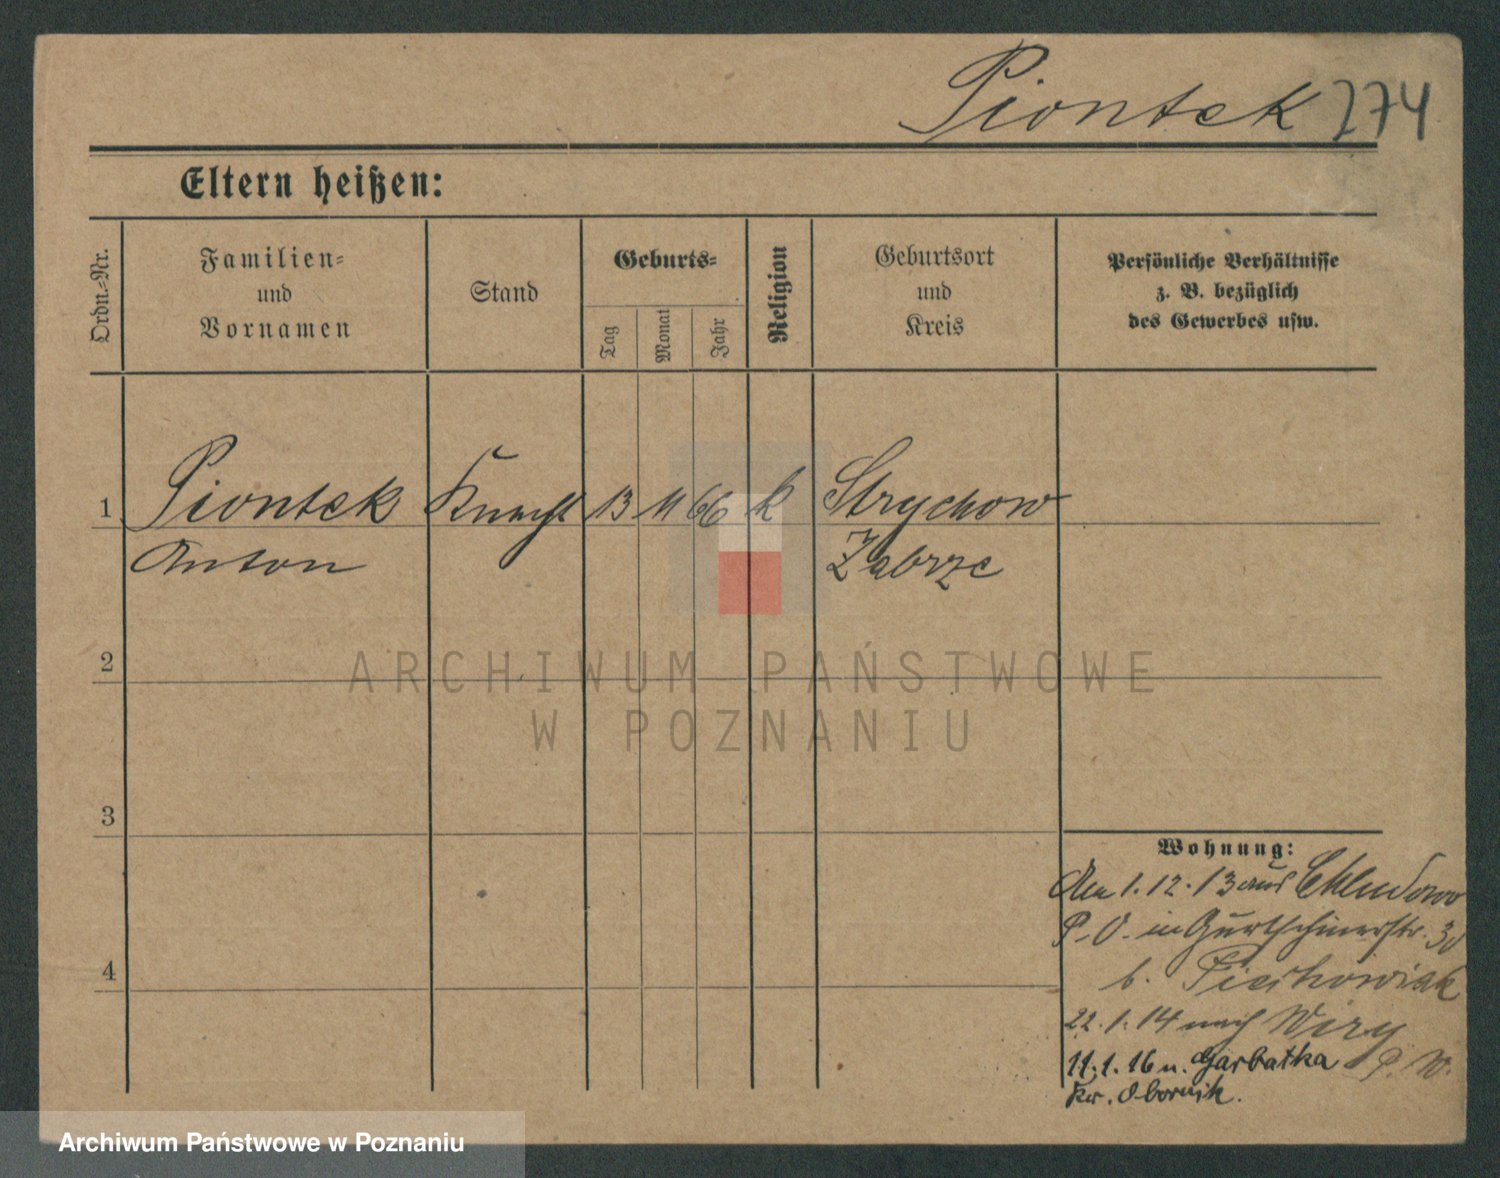 Piontek 274
Eltern heißen:
Ordn.-Nr.
Familien-
und
Vornamen
Stand
Geburts-
Tag
Monat
Jahr
Religion
Geburtsort
und
Kreis
Persönliche Verhältnisse
z. B. bezüglich
des Gewerbes usw.
1 Piontek Knecht 13 11 66 k Strychow
Anton Zabrze
2
3
4
ARCHIWUM PAŃSTWOWE
W POZNANIU
Wohnung:
Am 1.12.13 aus Chludowo
P. O. in Gurtschinerstr.
b.
22.1.14 nach Wiry
P. W.
11.1.16 n. Garbatka
Kr. Obornik.
Archiwum Państwowe w Poznaniu